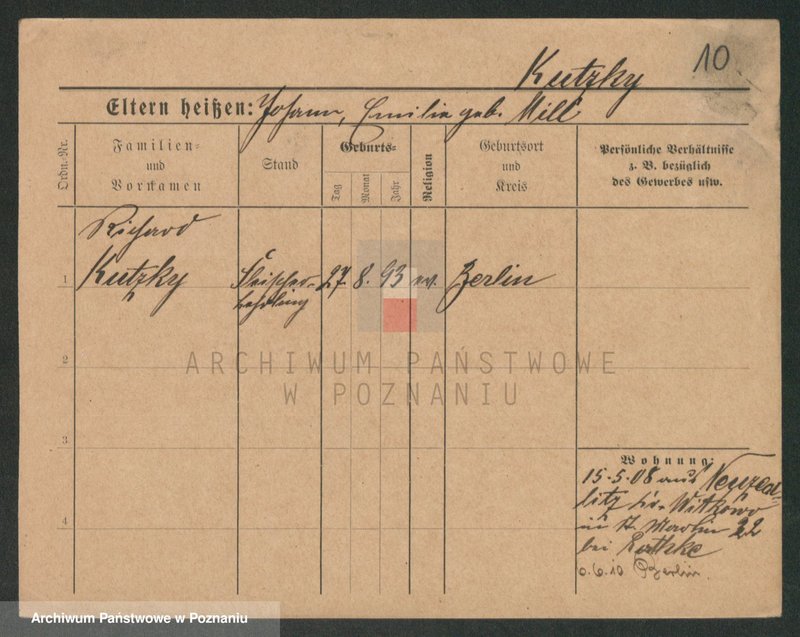 10
Kutzky
Eltern heißen: Johann, Emilia geb. Mill
Ordn.-Nr.
Familien-
und
Vornamen
Stand
Geburts-
Tag
Monat
Jahr
Religion
Geburtsort
und
Kreis
Persönliche Verhältnisse
z. B. bezüglich
des Gewerbes usw.
Richard
1 Kutzky Fleischer- 27. 8. 93 ev. Berlin
lehrling
2
3
4
Wohnung:
15.5.08 aus
Witkowo
in St. Martin 22
bei
6.10 Berlin.
ARCHIWUM PAŃSTWOWE
W POZNANIU
Archiwum Państwowe w Poznaniu